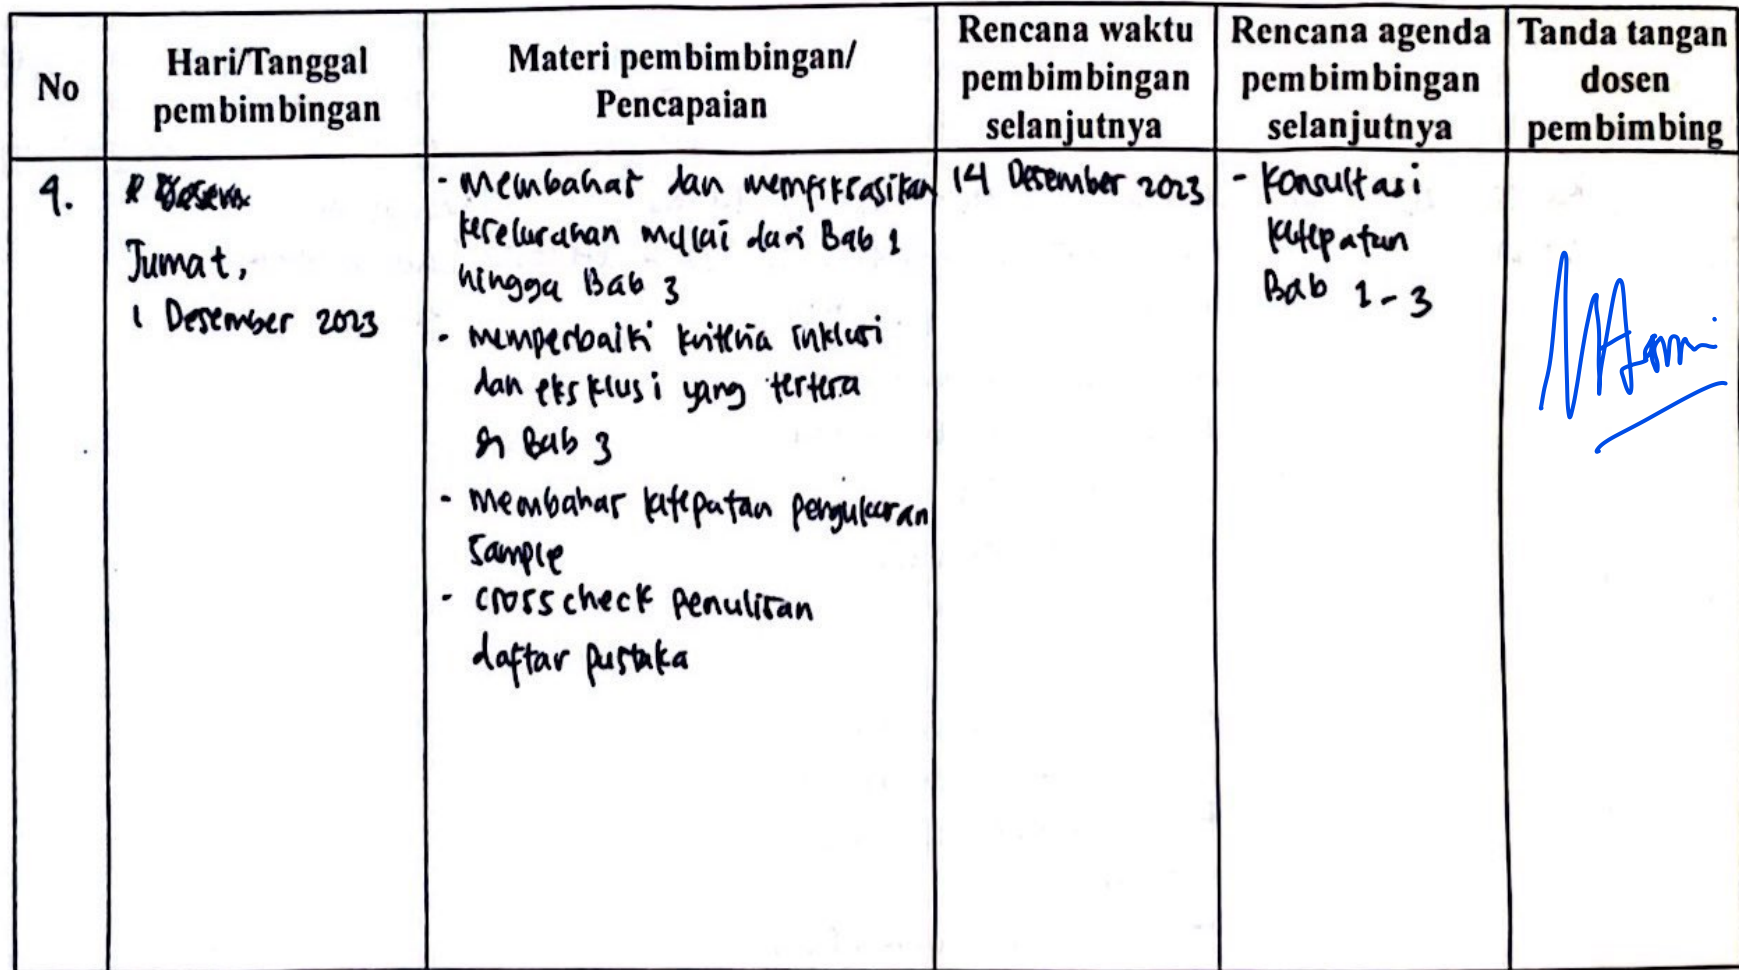 No
Hari/Tanggal
pembimbingan
Materi pembimbingan/
Pencapaian
Rencana waktu
pembimbingan
selanjutnya
Rencana agenda
pembimbingan
selanjutnya
Tanda tangan
dosen
pembimbing
4.
Jumat,
1 Desember 2023
- Membahas dan memfiksasikan
keselurahan mulai dari Bab 1
hingga Bab 3
- memperbaiki kriteria inklusi
dan eksklusi yang tertera
di Bab 3
- Membahas ketepatan pengukuran
sample
- crosscheck penulisan
daftar pustaka
14 Desember 2023
- Konsultasi
ketepatan
Bab 1-3